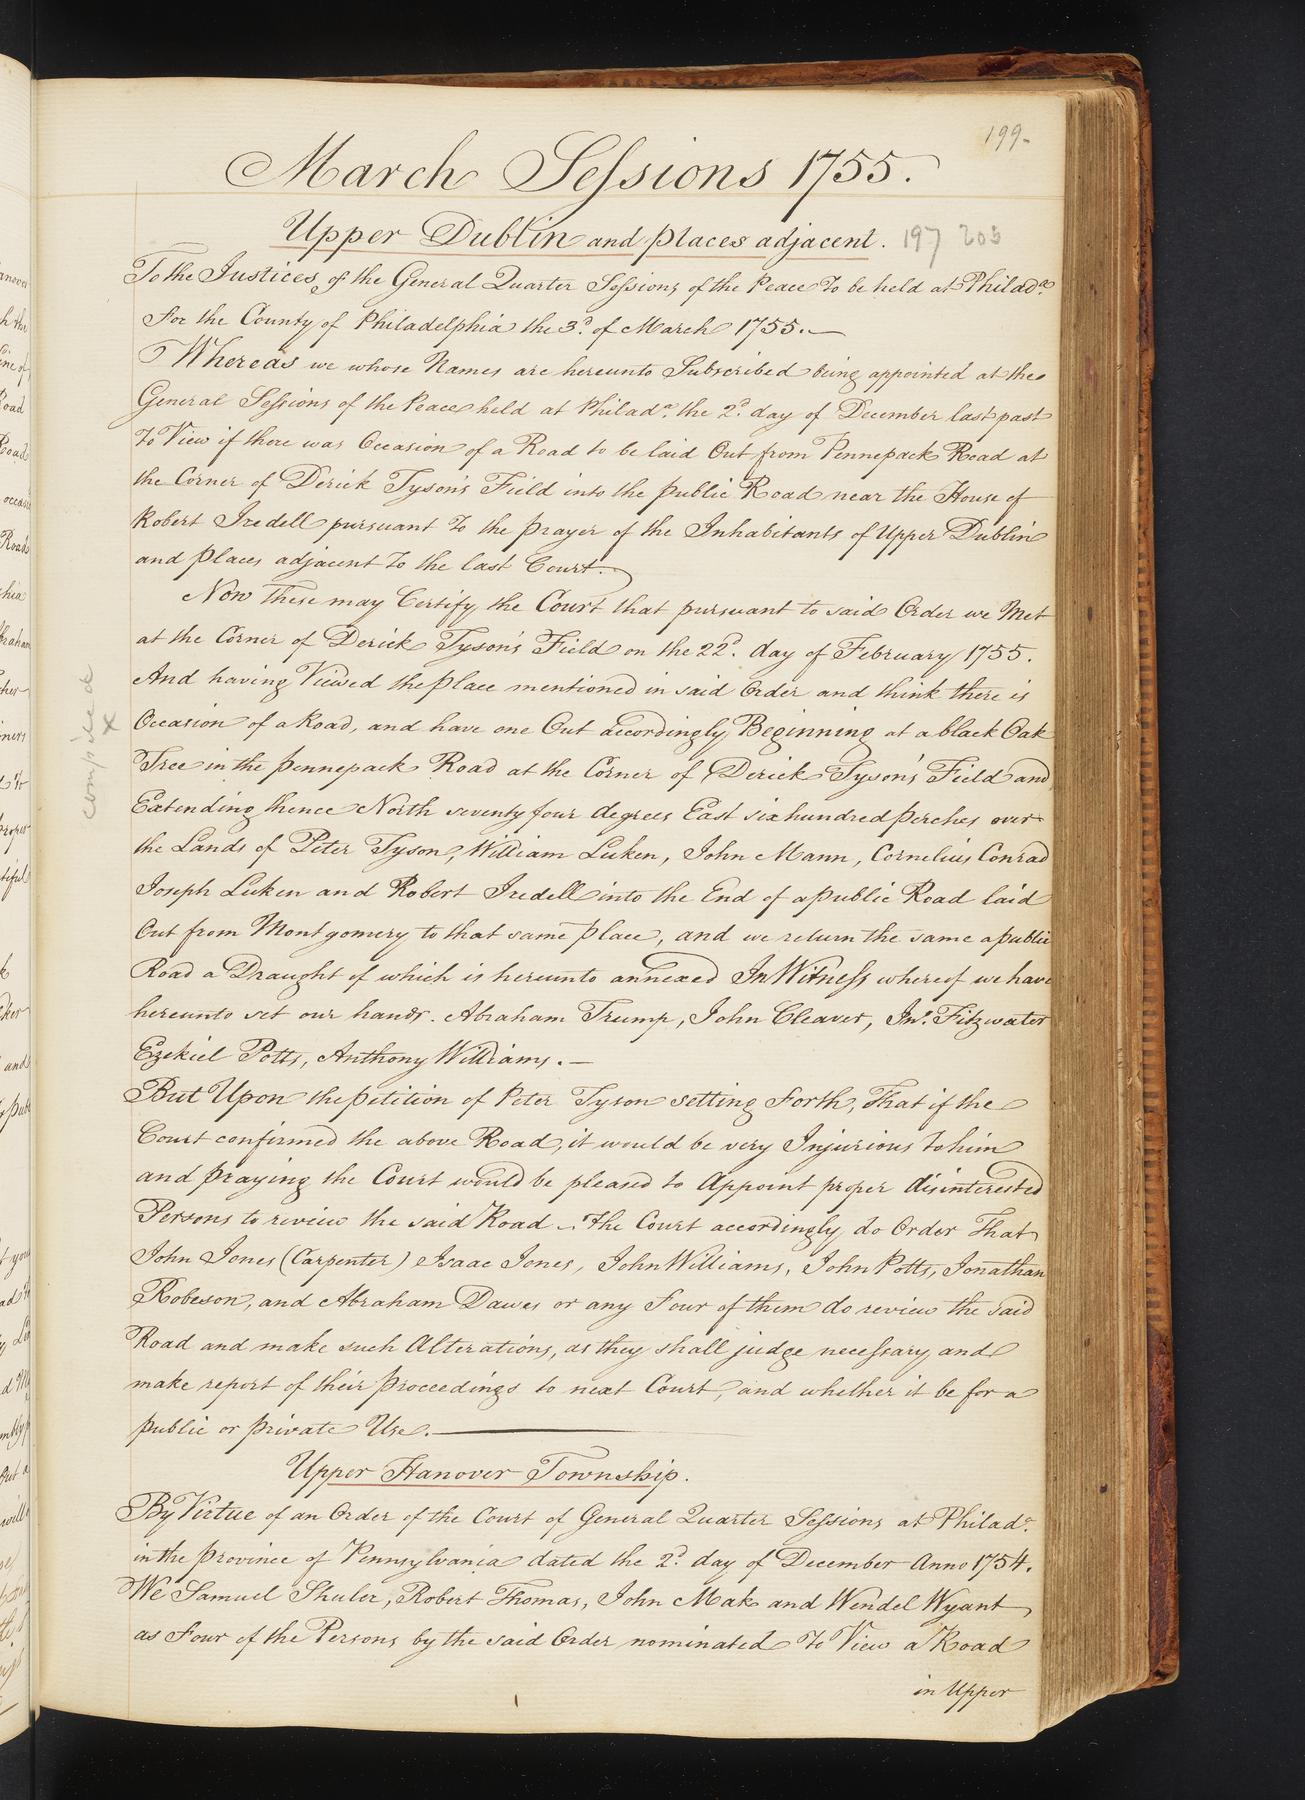 199.
March Sessions 1755.
Upper Dublin and places adjacent. 197 203
To the Justices of the General Quarter Sessions of the Peace To be held at Philada.
For the County of Philadelphia the 3d. of March 1755.—
Whereas we whose Names are hereunto Subscribed being appointed at the
General Sessions of the Peace held at Philada. the 2d. day of December last past
To View if there was Occasion of a Road to be laid Out from Pennepack Road at
the Corner of Derick Tyson's Field into the public Road near the House of
Robert Iredell pursuant To the prayer of the Inhabitants of Upper Dublin
and places adjacent To the last Court.
Now These may Certify the Court that pursuant to said Order we Met
at the Corner of Derick Tyson's Field on the 22d. day of February 1755.
And having Viewed the place mentioned in said Order and think there is
Occasion of a Road, and have one Out accordingly Beginning at a black Oak
Tree in the pennepack Road at the Corner of Derick Tyson's Field and
Extending thence North seventy four degrees East six hundred perches over
the Lands of Peter Tyson, William Luken, John Mann, Cornelius Conrad
Joseph Luken and Robert Iredell into the End of a public Road laid
Out from Montgomery to that same place, and we return the same a public
Road a Draught of which is hereunto annexed In Witness whereof we have
hereunto set our hands. Abraham Trump, John Cleaver, Jno. Fitzwater
Ezekiel Potts, Anthony Williams.—
But Upon the petition of Peter Tyson setting Forth, That if the
Court confirmed the above Road, it would be very Injurious to him
and praying the Court would be pleased to Appoint proper disinterested
Persons to review the said Road — The Court accordingly do Order That
John Jones (Carpenter) Isaac Jones, John Williams, John Potts, Jonathan
Robeson, and Abraham Dawes or any Four of them do review the said
Road and make such Alterations, as they shall judge necessary and
make report of their proceedings to next Court, and whether it be for a
public or private Use.—
Upper Hanover Township.
By Virtue of an Order of the Court of General Quarter Sessions at Philada.
in the province of Pennsylvania dated the 2d. day of December Anno 1754.
We Samuel Shuler, Robert Thomas, John Mak and Wendel Wyant
as Four of the Persons by the said Order nominated To View a Road
in Upper